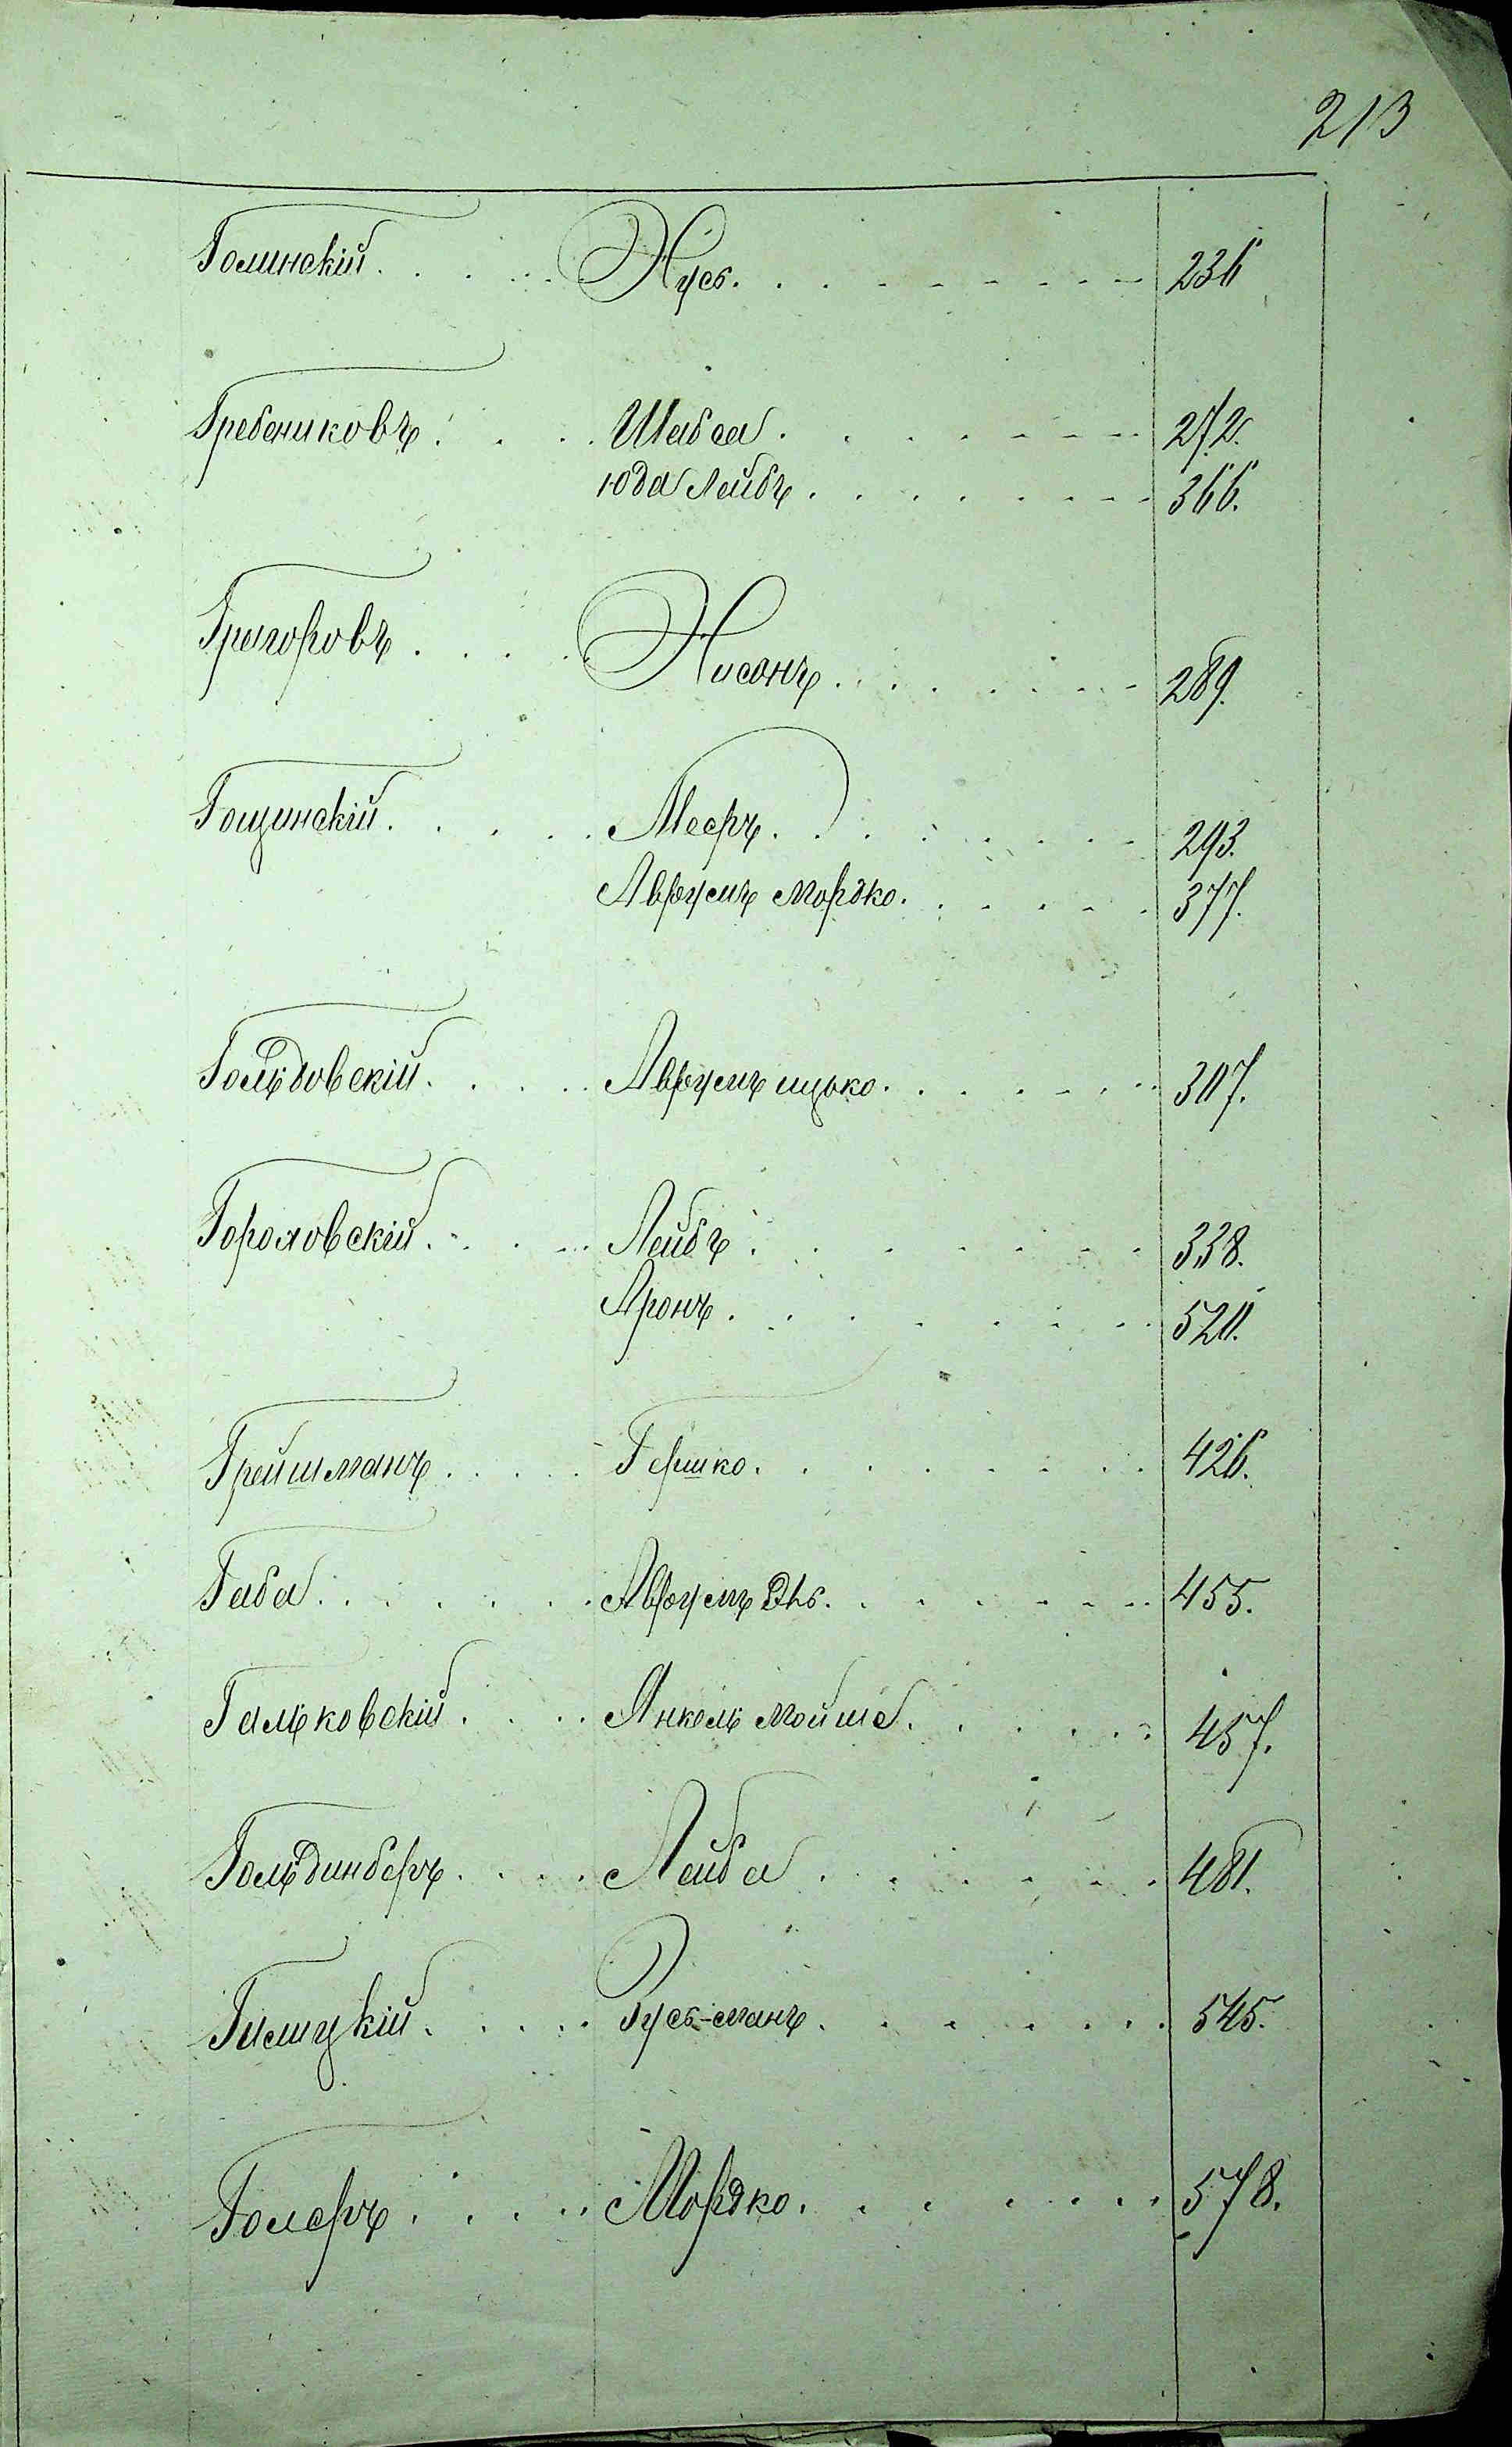 213
Голинскій . . . . Нусь . . . . . . . . 236
Гребениковъ . . . . Шабса . . . . . . . 272.
Юда Лейбъ . . . . . . . 366.
Григоровъ . . . . Нисонъ . . . . . . . 289.
Гощинскій . . . . . Мееръ . . . . . . . 293.
Аврумъ Мордко . . . . . 377.
Гольдовскій . . . . Аврумъ Ицько . . . . . . 307.
Гороховскій . . . . Лейбъ . . . . . . . 338.
Аронъ . . . . . . . 520.
Грейшманъ . . . . . Гершко . . . . . . . 426.
Габа . . . . . . Аврумъ Эль . . . . . . 455.
Гальковскій . . . . Янкель Мойше . . . . . 457.
Гольдинберъ . . . . Лейба . . . . . . 481.
Гилицкій . . . . Русь-манъ . . . . . . 545.
Голеръ . . . . Мордко . . . . . . 578.